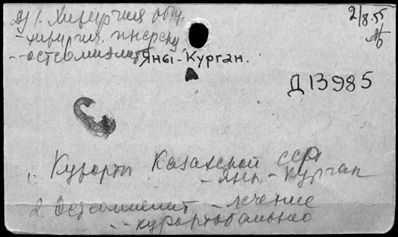 1. Хирургия общ.
2/8.55
- хирургия
- остеомиелит
Яны-Курган.
Д13985
1. Курорты Казахской ССР
- Яны-Курган
2. Остеомиелит - лечение
- курортовальное